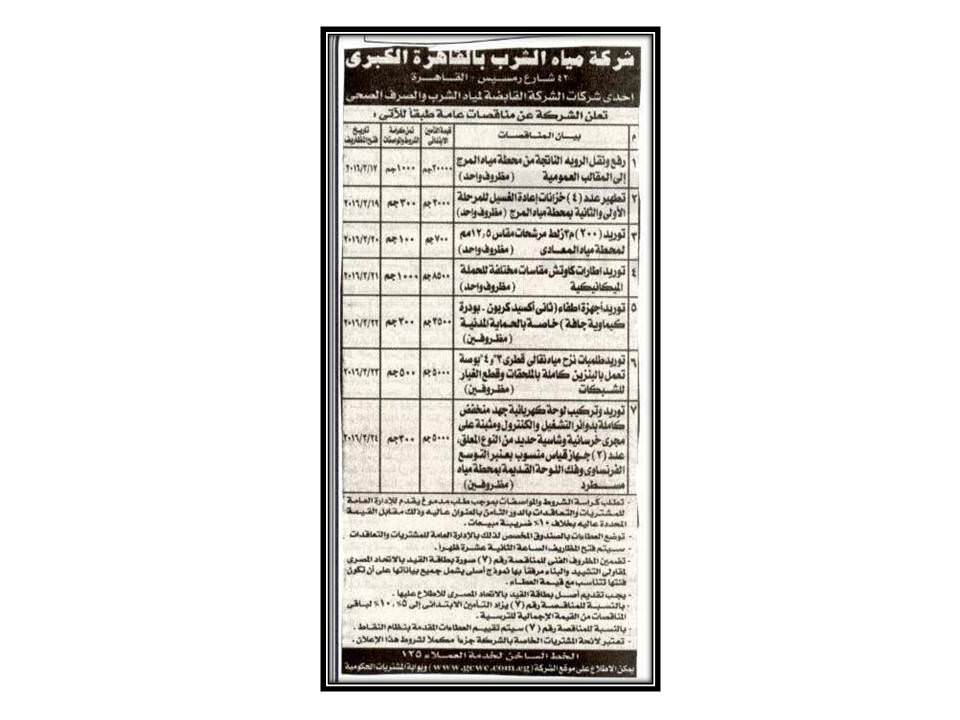 شركة مياه الشرب بالقاهرة الكبرى
٤٢ شارع رمسيس - القاهرة
إحدى شركات الشركة القابضة لمياه الشرب والصرف الصحى
تعلن الشركة عن مناقصات عامة طبقاً للآتى :
م بيان المناقصات قيمة التأمين الابتدائى ثمن كراسة الشروط والمواصفات تاريخ فتح المظاريف
١ رفع ونقل الروبه الناتجة من محطة مياه المرج
إلى المقالب العمومية (مظروف واحد) ٢٠٠٠٠جم ١٠٠٠جم ٢٠١٦/٢/١٧
٢ تطهير عدد (٤) خزانات إعادة الغسيل للمرحلة
الأولى والثانية بمحطة مياه المرج (مظروف واحد) ٣٠٠جم ٢٠١٦/٢/١٩
٣ توريد (٢٠٠) م٣ زلط مرشحات مقاس ١٢,٥مم
لمحطة مياه المعادى (مظروف واحد) ٧٠٠جم ١٠٠جم ٢٠١٦/٢/٢٠
٤ توريد اطارات كاوتش مقاسات مختلفة للحملة
الميكانيكية (مظروف واحد) ٨٥٠٠جم ١٠٠٠جم ٢٠١٦/٢/٢١
٥ توريد أجهزة اطفاء (ثانى أكسيد كربون - بودرة
كيماوية جافة) خاصة بالحماية المدنية
(مظروفين) ٢٠١٦/٢/٢٢
٦ توريد طلمبات نزح مياه نقالى قطرى ٣"و٤" بوصة
تعمل بالبنزين كاملة بالملحقات وقطع الغيار
للشبكات (مظروفين) ٥٠٠٠جم ٥٠٠جم ٢٠١٦/٢/٢٣
٧ توريد وتركيب لوحة كهربائية جهد منخفض
كاملة بدوائر التشغيل والكنترول ومثبتة على
مجرى خرسانية وشاسية حديد من النوع المغلق،
عدد (٢) جهاز قياس منسوب بعنبر التوسع
الفرنساوى وفك اللوحة القديمة بمحطة مياه
مسطرد (مظروفين) ٥٠٠٠جم ٣٠٠جم ٢٠١٦/٢/٢٤
- تطلب كراسة الشروط والمواصفات بموجب طلب مدموغ يقدم للإدارة العامة
للمشتريات والتعاقدات بالدور الثامن بالعنوان عاليه وذلك مقابل القيمة
المحددة عاليه بخلاف ١٠٪ ضريبة مبيعات .
- توضع العطاءات بالصندوق المخصص لذلك بالإدارة العامة للمشتريات والتعاقدات
- سيتم فتح المظاريف الساعة الثانية عشرة ظهراً .
- تضمين المظروف الفنى للمناقصة رقم (٧) صورة بطاقة القيد بالاتحاد المصرى
لمقاولى التشييد والبناء مرفقاً بها نموذج أصلى يشمل جميع بياناتها على أن تكون
فئتها تتناسب مع قيمة العطاء .
- يجب تقديم أصل بطاقة القيد بالاتحاد المصرى للإطلاع عليها .
- بالنسبة للمناقصة رقم (٧) يزاد التأمين الابتدائى إلى ٥٪ ، ١٠٪ لباقى
المناقصات من القيمة الإجمالية للترسية .
- بالنسبة للمناقصة رقم (٧) سيتم تقييم العطاءات المقدمة بنظام النقاط .
- تعتبر لائحة المشتريات الخاصة بالشركة جزءاً مكملاً لشروط هذا الإعلان .
الخط الساخن لخدمة العملاء ١٢٥
يمكن الاطلاع على موقع الشركة (www.gcwc.com.eg) وبوابة المشتريات الحكومية